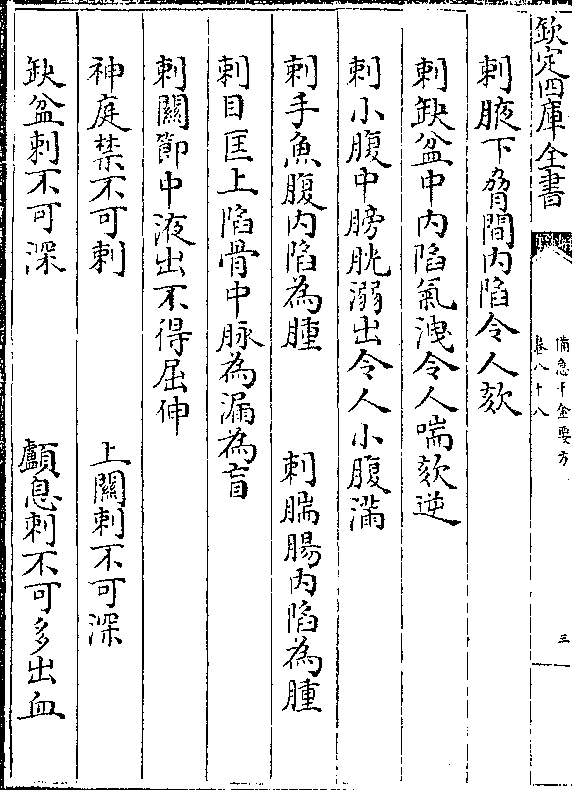 欽定四庫全書
備急千金要方
卷八十八
三
刺腋下脅間内陷令人欬
刺缺盆中内陷氣洩令人喘欬逆
刺小腹中膀胱溺出令人小腹滿
刺手魚腹内陷為腫 刺腨腸内陷為腫
刺目匡上陷骨中脉為漏為盲
刺關節中液出不得屈伸
神庭禁不可刺 上關刺不可深
缺盆刺不可深 顱息刺不可多出血